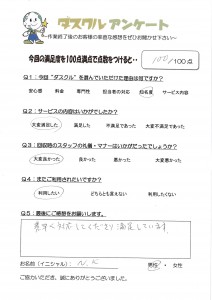 ダスクル アンケート
~作業終了後のお客様の率直な感想をぜひお聞かせ下さい~
今回の満足度を100点満点で点数をつけると・・ 100/100点
Q1：今回“ダスクル”を選んでいただけた理由は何ですか？
安心感 料金 専門性 担当者の対応 知名度 サービス内容
Q2：サービスの内容はいかがでしたか？
大変満足した 満足した 不満足であった 大変不満足であった
Q3：回収時のスタッフの礼儀・マナーはいかがだったでしょうか？
大変良かった 良かった 悪かった 大変悪かった
Q4：またご利用されたいですか？
利用したい どちらとも言えない 利用したくない
Q5：最後にご感想をお願いします。
素早く対応してくださり満足しています。
お名前（イニシャル）： N.K 男性 ・ 女性
ご協力いただき、誠にありがとうございました。